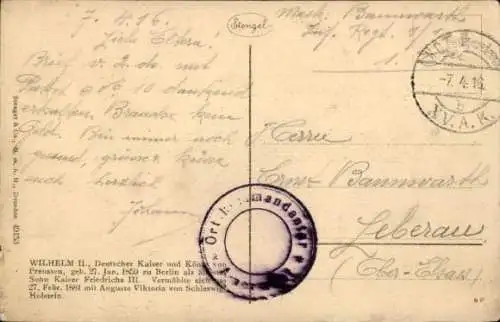 7. 4. 16.
Liebe Eltern!
Brief v. 2. ds. mit
Paket No 10 dankend
erhalten. Brauche kein
Geld. Bin immer noch
gesund, grüsse
euch herzlich
Johann
Stengel
Musk. Bannwarth
Inf. Regt.
1.
-7. 4. 16
b
XV. A. K.
Herrn
Ernst Bannwarth
Leberau
(Ober-Elsass)
Ortskommandantur
Stengel & Co., G. m. b. H., Dresden
WILHELM II., Deutscher Kaiser und König von
Preussen, geb. 27. Jan. 1859 zu Berlin als
Sohn Kaiser Friedrichs III. Vermählte sich
27. Febr. 1881 mit Auguste Viktoria von Schleswig-
Holstein.